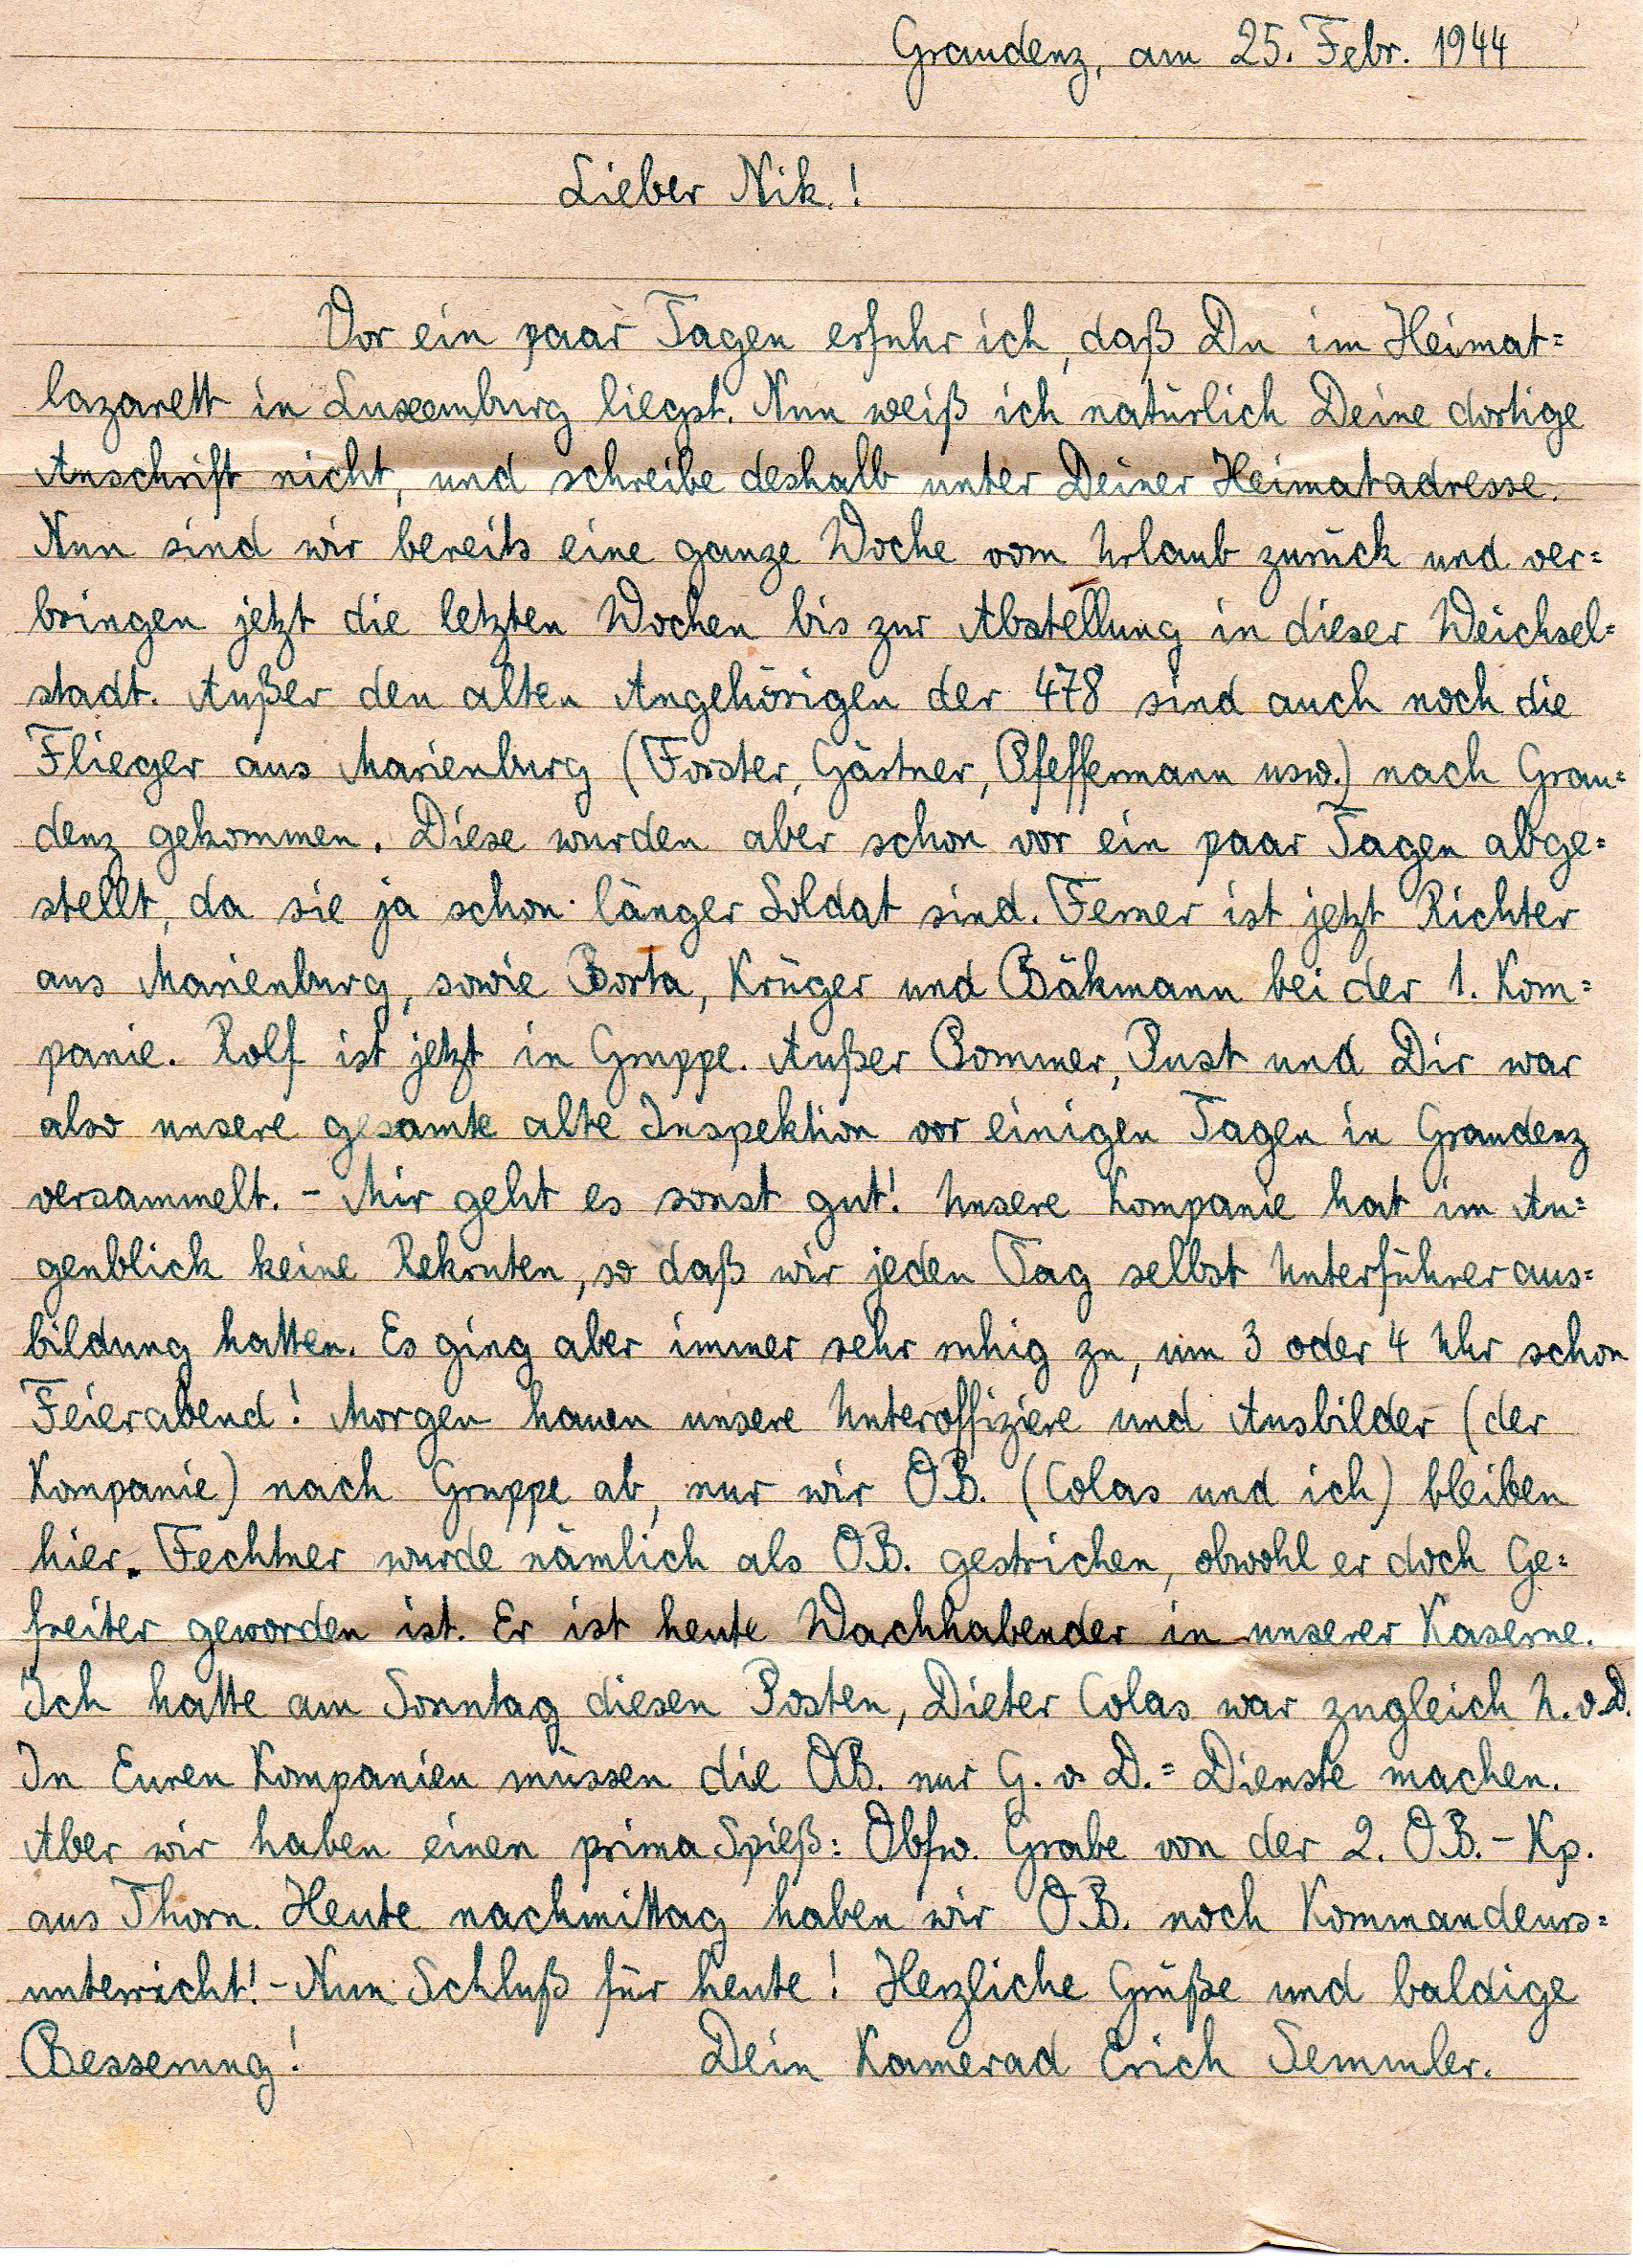 Graudenz, am 25. Febr. 1944
Lieber Nik.!
Vor ein paar Tagen erfuhr ich, daß Du im Heimat=
lazarett in Luxemburg liegst. Nun weiß ich natürlich Deine dortige
Anschrift nicht, und schreibe deshalb unter Deiner Heimatadresse.
Nun sind wir bereits eine ganze Woche vom Urlaub zurück und ver=
bringen jetzt die letzten Wochen bis zur Abstellung in dieser Weichsel=
stadt. Außer den alten Angehörigen der 478 sind auch noch die
Flieger aus Marienburg (Forster, Gärtner, Pfeffermann usw.) nach Grau=
denz gekommen. Diese wurden aber schon vor ein paar Tagen abge=
stellt, da sie ja schon länger Soldat sind. Ferner ist jetzt Richter
aus Marienburg, sowie Borta, Krüger und Bäkmann bei der 1. Kom=
panie. Rolf ist jetzt in Gruppe. Außer Bommer, Pust und Dir war
also unsere gesamte alte Inspektion vor einigen Tagen in Graudenz
versammelt. - Mir geht es sonst gut! Unsere Kompanie hat im Au=
genblick keine Rekruten, so daß wir jeden Tag selbst Unterführeraus=
bildung hatten. Es ging aber immer sehr ruhig zu, um 3 oder 4 Uhr schon
Feierabend! Morgen hauen unsere Unteroffiziere und Ausbilder (der
Kompanie) nach Gruppe ab, nur wir O.B. (Colas und ich) bleiben
hier. Fechtner wurde nämlich als O.B. gestrichen, obwohl er doch Ge=
freiter geworden ist. Er ist heute Wachhabender in unserer Kaserne.
Ich hatte am Sonntag diesen Posten, Dieter Colas war zugleich U.v.D.
In Euren Kompanien müssen die O.B. nur G.v.D.= Dienste machen.
Aber wir haben einen prima Spieß: Obfw. Grabe von der 2. O.B.-Kp.
aus Thorn. Heute nachmittag haben wir O.B. noch Kommandeurs=
unterricht! - Nun Schluß für heute! Herzliche Grüße und baldige
Besserung! Dein Kamerad Erich Semmler.